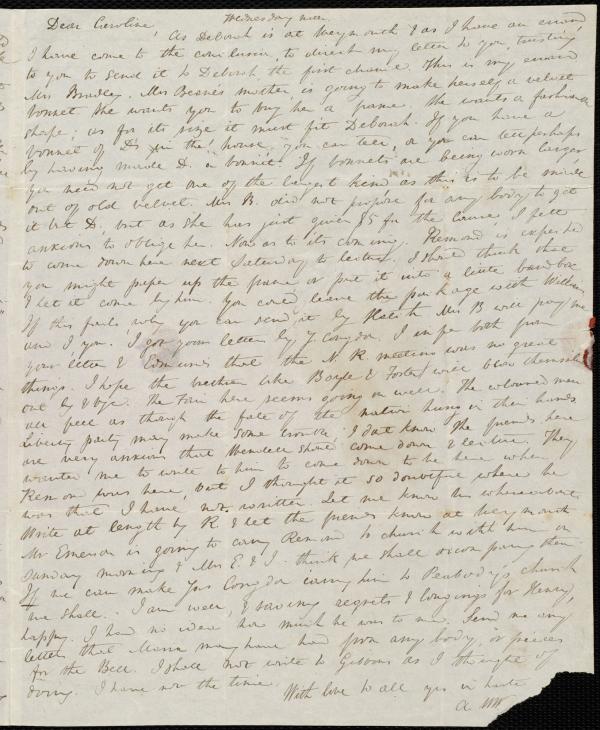 Wednesday noon
Dear Caroline, As Deborah is at Weymouth & as I have an errand
I have come to the conclusion to direct my letter to you, trusting
to you to send it to Deborah the first chance. This is my errand
Mrs Bradley, Mrs mother is going to make herself a velvet
bonnet she wants you to buy her a frame. She wants a fashionable
shape; as for its size it must fit Deborah. If you have a
bonnet of D's in the house, you can tell, or you can tell perhaps
by having made D. a bonnet. If bonnets are being worn larger
you need not get one of the largest kind as this is to be made
out of old velvet. Mrs B. did not propose for any body to get
it but D, but as she has just given $5 for the cause I felt
anxious to oblige her. Now as to its coming. Remond is expected
to come down here next Saturday to lecture. I should think that
you might paper up the frame or put it into a little bandbox
& let it come by him. You could leave the package with William
If this fails why you can send it by Hatch Mrs B will pay me
and I you. I got your letter by J Congdon. I infer both from
your letter & Edmunds that the N. R. meetings was no great
things. I hope the brethren like Boyle & Foster will blow themselves
out by & bye. The Fair here seems going on well. The coloured men
all feel as though the fate of the nation hung in their hands.
Liberty party may make some trouble, I dont know. The friends here
are very anxious that Wendell should come down & lecture. They
wanted me to write to him to come down to be here when
Remond was here, but I thought it so doubtful where he
was that I have not written. Let me know his whereabouts
Write at length by R & let the friends know at Weymouth
Mr Emerson is going to carry Remond to church with him on
Sunday morning & Mrs E. & I think we shall accompany them.
If we can make Jas Congdon carry him to Peabody's church
we shall. I am well, & saving regrets & longings for Henry,
happy. I had no idea how much he was to me. Send me any
letters that Maria may have had from any body or pieces
for the Bell. I shall not write to Gibbons as I thought of
doing. I have not the time.
With love to all yrs in haste
A. WW